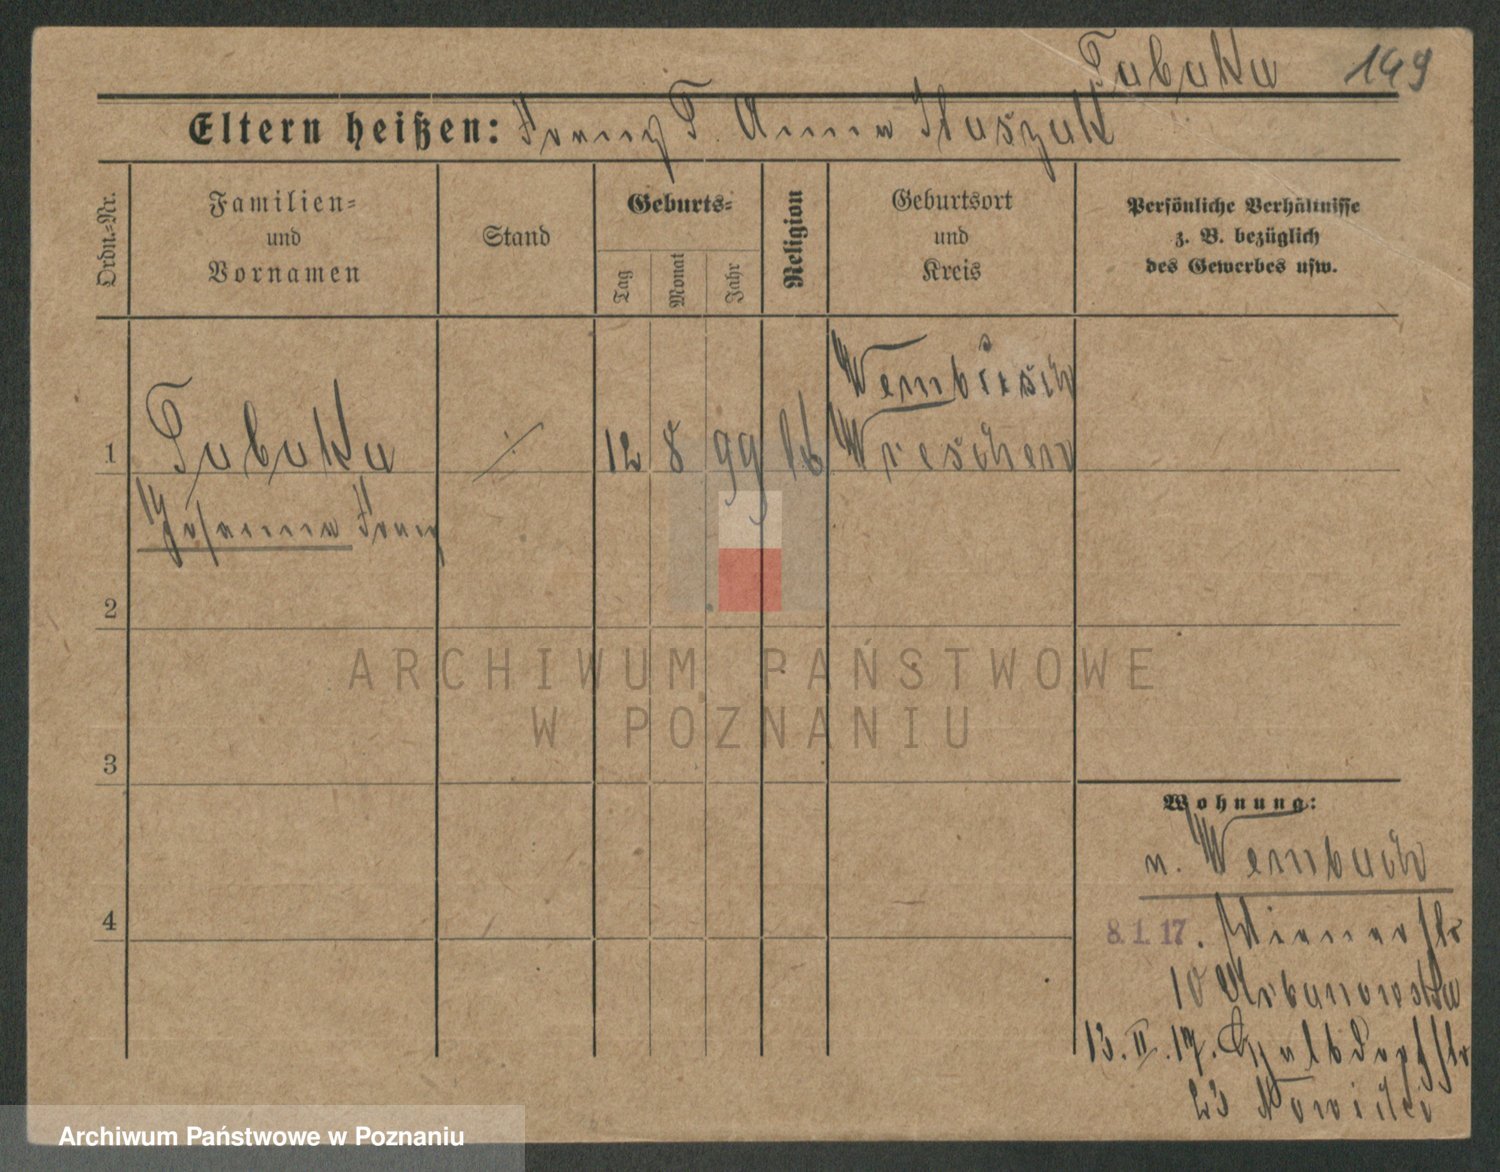 Tabaka 149
Eltern heißen: Franz T. Anna Kaszak
Ordn.-Nr.
Familien=
und
Vornamen
Stand
Geburts=
Tag
Monat
Jahr
Religion
Geburtsort
und
Kreis
Persönliche Verhältnisse
z. B. bezüglich
des Gewerbes usw.
1 Tabaka 12 8 99 kb Wreschen
Johanna Franz
2
ARCHIWUM PAŃSTWOWE
W POZNANIU
3
Wohnung:
n. Wembuch
4
8.1.17.
10 Urbanowska
13.II.17.
23 Nowicki
Archiwum Państwowe w Poznaniu